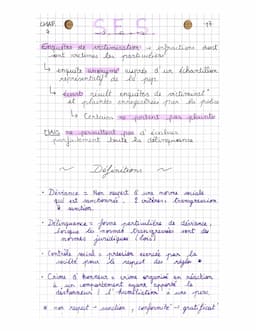 CHAP. 4
SES
17
Enquêtes de victimisation → infractions dont
sont victimes les particuliers
↳ enquête anonyme auprès d'un échantillon
représentatif de la pop.
↳ écarts result enquêtes de victimisat°
et plaintes enregistrées par la police
↳ Certains ne portent pas plainte
MAIS ne permettent pas d'évaluer
parfaitement toute la délinquance
~ Définitions ~
• Déviance = Non respect d'une norme sociale
qui est sanctionnée. 2 critères: transgression
& sanction.
• Délinquance = forme particulière de déviance,
lorsque les normes transgressées sont des
normes juridiques (lois)
• Contrôle social = pression exercée par la
société pour le respect des règles *
• Crime d'honneur = crime organisé en réaction
à un comportement ayant apporté le
déshonneur / l'humiliation à une pers.
* non respect → sanction, conformité → gratificat°